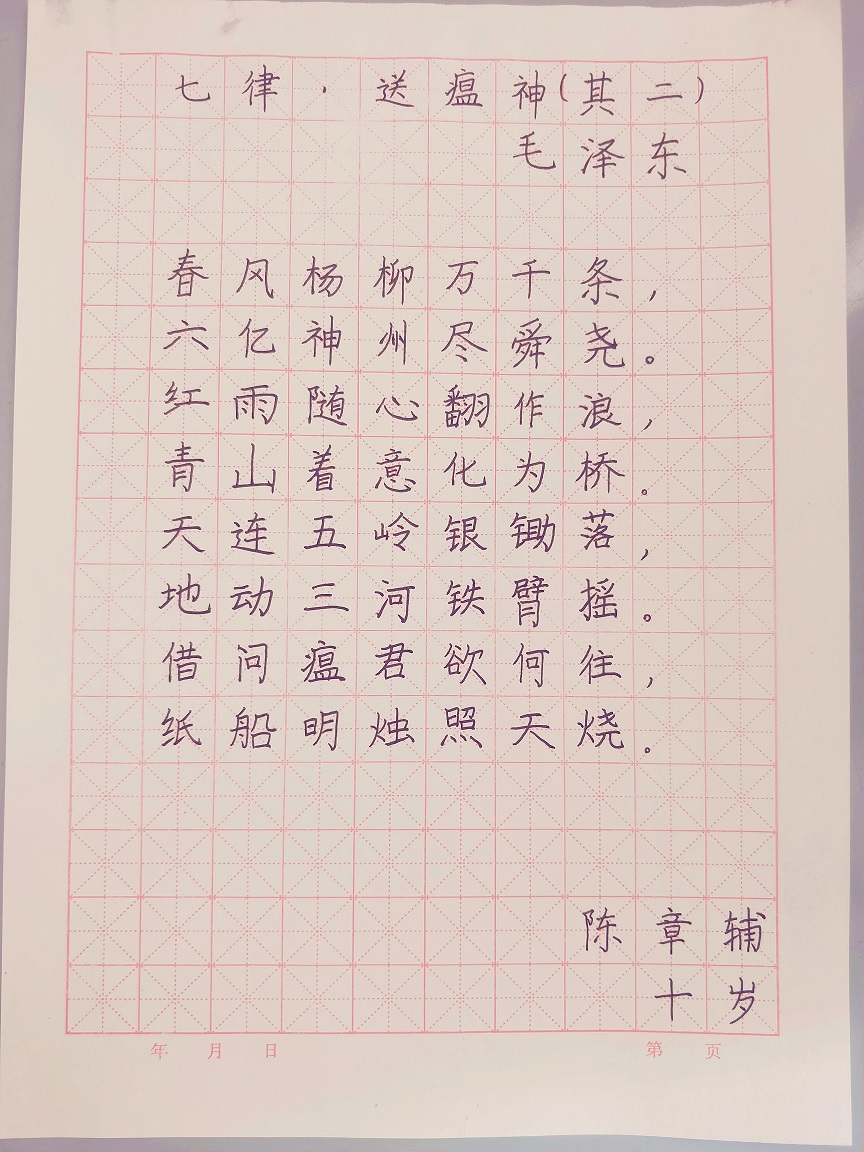 七律·送瘟神(其二)
毛泽东
春风杨柳万千条,
六亿神州尽舜尧。
红雨随心翻作浪,
青山着意化为桥。
天连五岭银锄落,
地动三河铁臂摇。
借问瘟君欲何往,
纸船明烛照天烧。
陈章辅
十岁
年 月 日 第 页